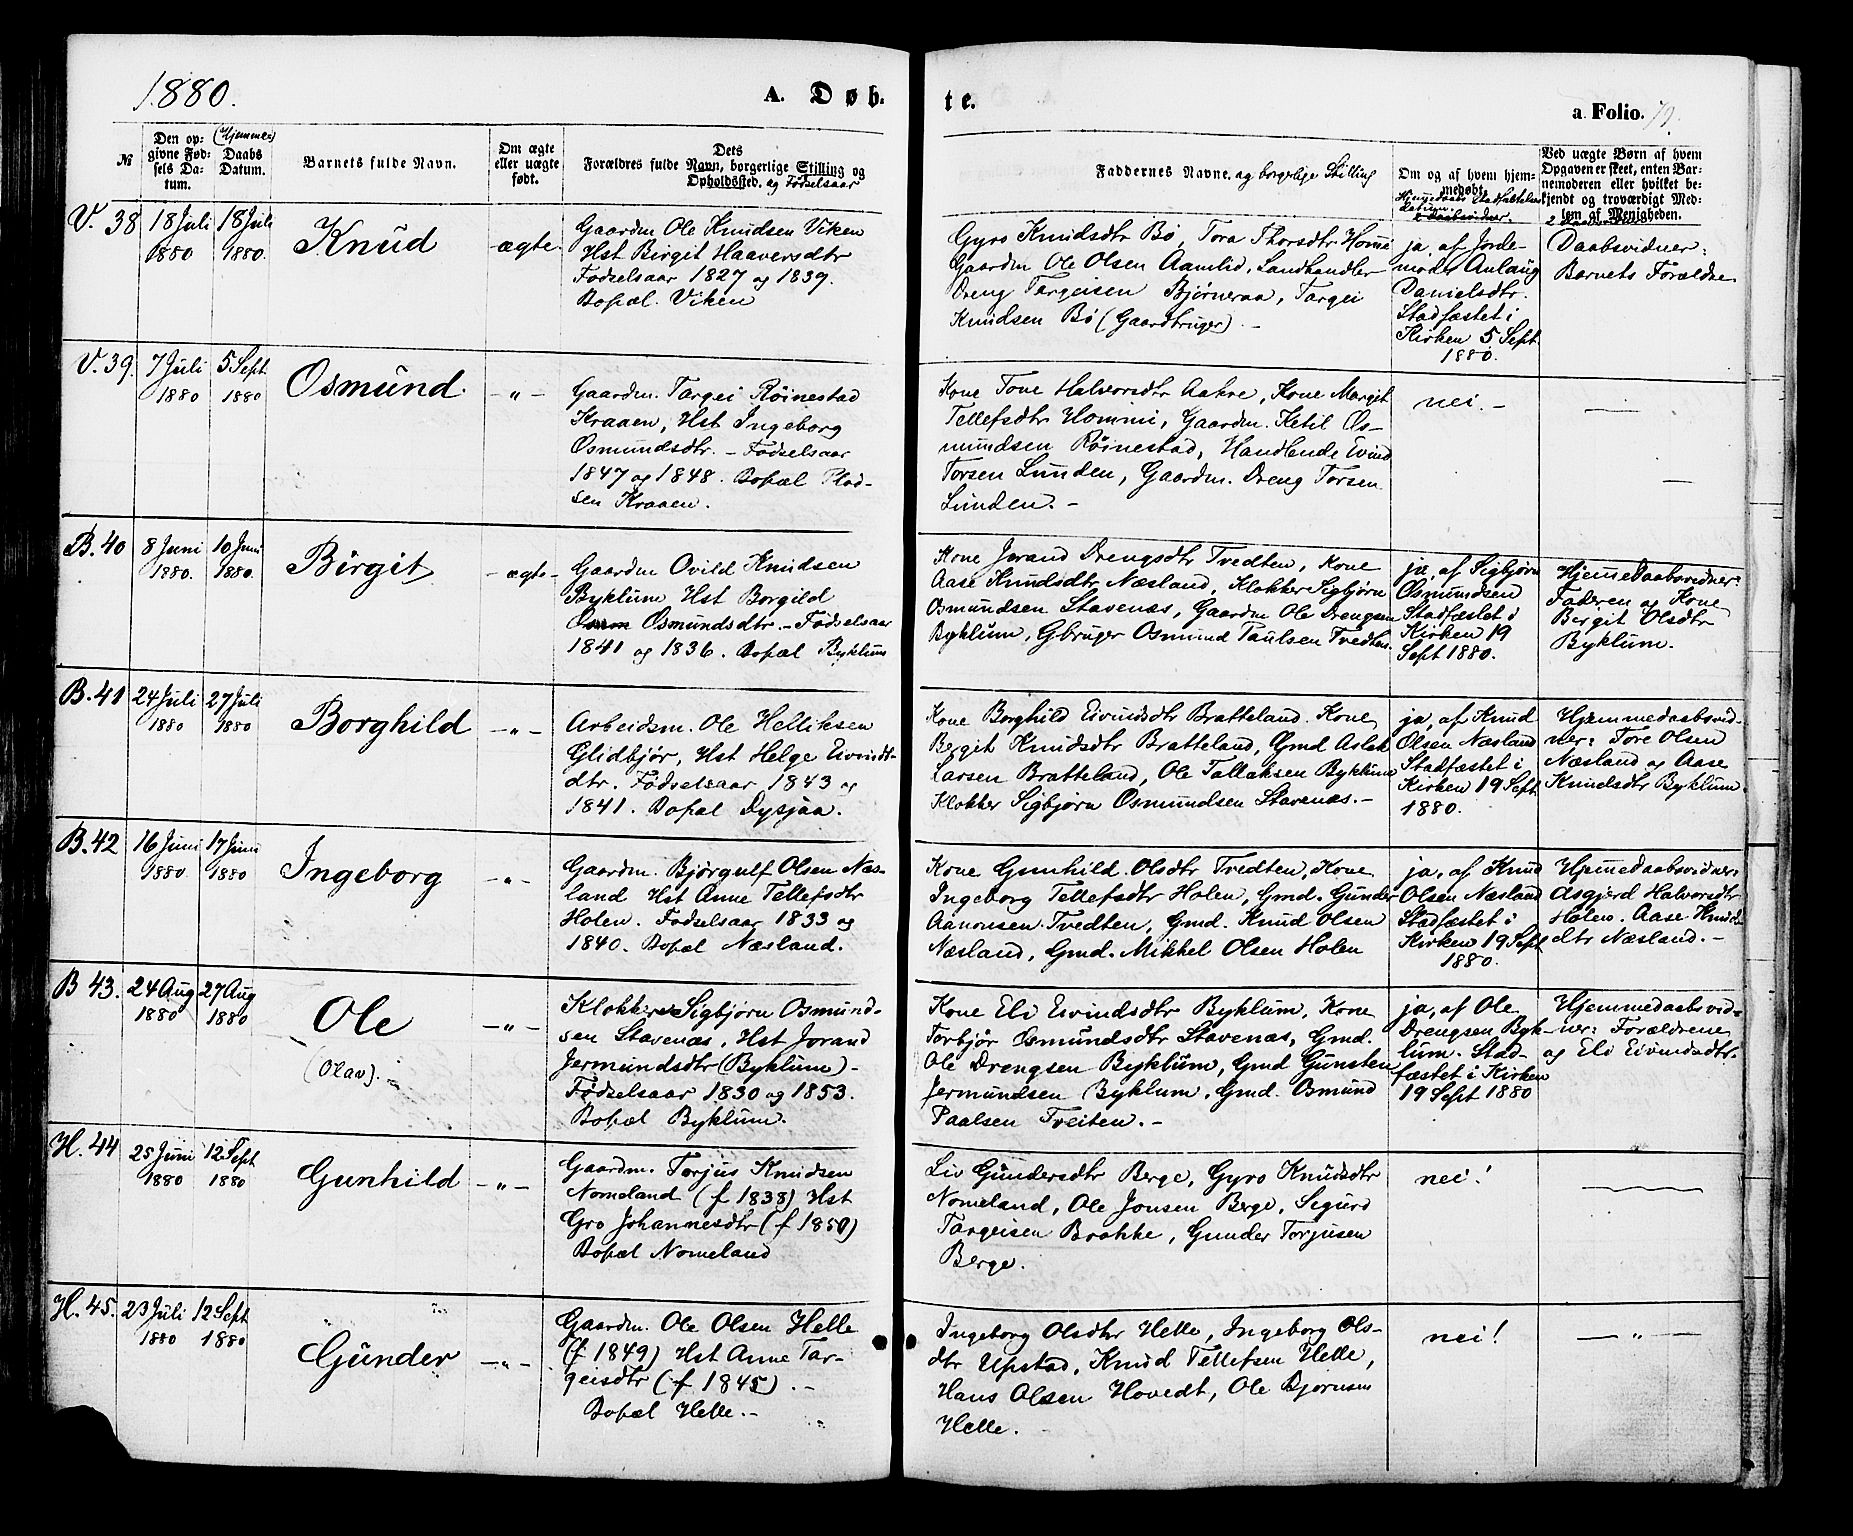 1880.
A. Døb-
te.
a. Folio. 79.
№
Den op-
givne Fød-
sels Da-
tum.
(Hjemme-)
Daabs
Datum.
Barnets fulde Navn.
Om ægte
eller uægte
født.
Dets
Forældres fulde Navn, borgerlige Stilling og
Opholdssted. og Fødselsaar
Faddernes Navne. og borgerlige Stilling
Om og af hvem hjem-
medøbt.
2 Daabsvidner.
Ved uægte Børn af hvem
Opgaven er skeet, enten Bar-
nemoderen eller hvilket be-
kjendt og troværdigt Med-
lem af Menigheden.
V. 38
18 Juli
1880
18 Juli
1880.
Knud
ægte
Gaardm Ole Knudsen Viken
Hst Birgit Haavorsdtr
Fødselsaar 1827 og 1839.
Bopæl. Viken
Gyro Knudsdtr Bø, Tora Thorsdtr Homme
Gaardm Ole Olsen Aamlid, Landhandler
Dreng Targeisen Bjørneraa, Targei
Knudsen Bø (Gaardbruger). -
ja, af Jorde-
moder Anlaug
Danielsdtr.
Stadfæstet i
Kirken 5 Sept
1880.
Daabsvidner:
Barnets Forældre
V. 39.
7 Juli
1880
5 Sept
1880
Osmund.
- " -
Gaardm. Targei Røinestad
Kraaen, Hst Ingeborg
Osmundsdtr. - Fødselsaar
1847 og 1848. Bopæl Plad-
sen Kraaen.
Kone Tone Halvorsdtr Aakre, Kone Margit
Tellefsdtr Hommi, Gaardm. Ketil Os-
mundsen Røinestad, Handlende Eivind
Torsen Lunden, Gaardm. Dreng Torsen
Lunden. -
nei. -
B. 40
8 Juni
1880.
10 Juni
1880.
Birgit
- ægte -
Gaardm Ovild Knudsen
Byklum Hst Borgild
Osmundsdtr. - Fødselsaar
1841 og 1836. Bopæl Byklum
Kone Jorand Drengsdtr Tvedten, Kone
Aase Knudsdtr Næsland, Klokker Sigbjørn
Osmundsen Stavenæs, Gaardm Ole Drengsen
Byklum, Gbruger Osmund Taulsen Tvedten.
ja, af Sigbjørn
Osmundsen
Stadfæstet i
Kirken 19
Sept 1880.
Hjemmedaabsvidner:
Faderen og Kone
Bergit Olsdtr
Byklum.
B. 41
24 Juli
1880
27 Juli
1880
Borghild
- " -
Arbeidsm. Ole Helliksen
Glidbjør, Hst Helge Eivinds-
dtr. Fødselsaar 1843 og
1841. Bopæl Dysjaa.
Kone Borghild Eivindsdtr Bratteland. Kone
Bergit Knudsdtr Bratteland, Gmd Aslak
Larsen Bratteland, Ole Tallaksen Byklum
Klokker Sigbjørn Osmundsen Stavenæs. -
ja, af Knud
Olsen Næsland
Stadfæstet i
Kirken 19 Sept
1880.
Hjemmedaabsvid-
ner: Tore Olsen
Næsland og Aase
Knudsdtr Byklum
B. 42
16 Juni
1880.
17 Juni
1880
Ingeborg
- " -
Gaardm. Bjørgulf Olsen Næs-
land Hst Anne Tellefsdtr
Holen. Fødselsaar 1833 og
1840. Bopæl Næsland.
Kone Gunhild Olsdtr Tvedten, Kone
Ingeborg Tellefsdtr Holen, Gmd. Gunder
Aanonsen Tvedten, Gmd. Knud Olsen
Næsland, Gmd. Mikkel Olsen Holen
ja, af Knud
Olsen Næsland
Stadfæstet i
Kirken 19 Sept
1880.
Hjemmedaabsvidner:
Asgjerd Halvorsdtr
Holen. Aase Knuds-
dtr Næsland. -
B 43.
24 Aug
1880
27 Aug
1880
Ole
(Olav). -
- " -
Klokker Sigbjørn Osmund-
sen Stavenæs, Hst Jorand
Jermundsdtr (Byklum) -
Fødselsaar 1830 og 1853.
Bopæl Byklum.
Kone Eli Eivindsdtr Byklum, Kone
Torbjør Osmundsdtr Stavenæs, Gmd.
Ole Drengsen Byklum, Gmd Gunsten
Jermundsen Byklum, Gmd. Osmund
Paalsen Tveiten. -
ja, af Ole
Drengsen Byk-
lum. Stad-
fæstet i Kirken
19 Sept 1880
Hjemmedaabsvid-
ner: Forældrene
og Eli Eivindsdtr.
H. 44
25 Juni
1880
12 Sept
1880
Gunhild
- " -
Gaardm. Torjus Knudsen
Nomeland (f 1838) Hst
Gro Johannesdtr (f 1850)
Bopæl Nomeland
Liv Gundersdtr Berge, Gyro Knudsdtr
Nomeland, Ole Jonsen Berge, Sigurd
Targeisen Brokke, Gunder Torjusen
Berge.
nei!
H. 45.
23 Juli
1880
12 Sept
1880
Gunder
- " -
Gaardm. Ole Olsen Helle
(f 1849) Hst Anne Tar-
geisdtr (f 1845). -
Bopæl Helle. -
Ingeborg Olsdtr Helle, Ingeborg Ols-
dtr Upstad, Knud Tellefsen Helle,
Hans Olsen Hovedt, Ole Bjørnsen
Helle.
nei!
- " -